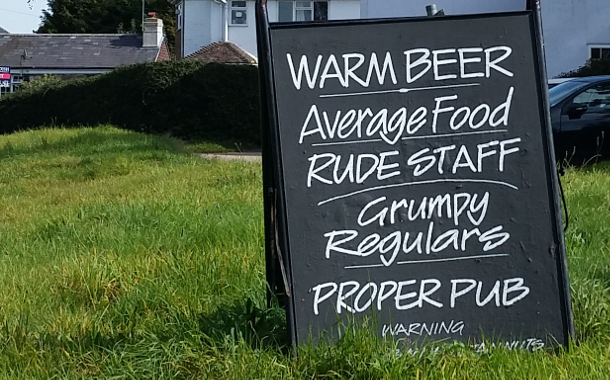 WARM BEER
Average Food
RUDE STAFF
Grumpy
Regulars
PROPER PUB
WARNING
NUTS